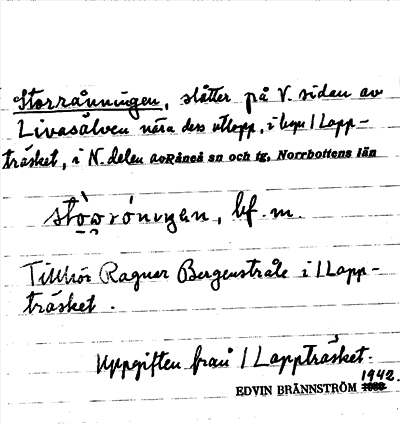 Storrånningen, slåtter på V. sidan av
Livasälven nära dess utlopp, i byn 1 Lapp-
träsket, i N. delen av Råneå sn och tg, Norrbottens län
bf. m.
Tillhör Ragnar Bergenstråle i 1 Lapp-
träsket.
Uppgiften från 1 Lappträsket.
1942.
EDVIN BRÄNNSTRÖM